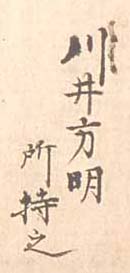 川井方明
所持之